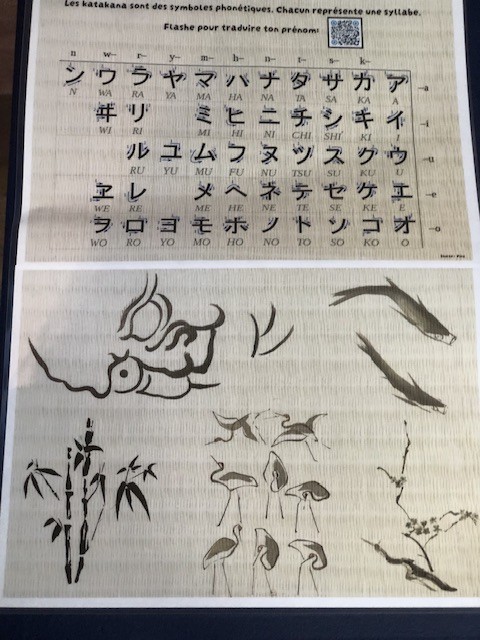 Les katakana sont des symboles phonétiques. Chacun représente une syllabe.
Flashe pour traduire ton prénom:
n w– r– y– m– h– n– t– s– k–
ン ワ ラ ヤ マ ハ ナ タ サ カ ア –a
N WA RA YA MA HA NA TA SA KA A
ヰ リ ミ ヒ ニ チ シ キ イ –i
WI RI MI HI NI CHI SHI KI I
ル ユ ム フ ヌ ツ ス ク ウ –u
RU YU MU FU NU TSU SU KU U
ヱ レ メ ヘ ネ テ セ ケ エ –e
WE RE ME HE NE TE SE KE E
ヲ ロ ヨ モ ホ ノ ト ソ コ オ –o
WO RO YO MO HO NO TO SO KO O